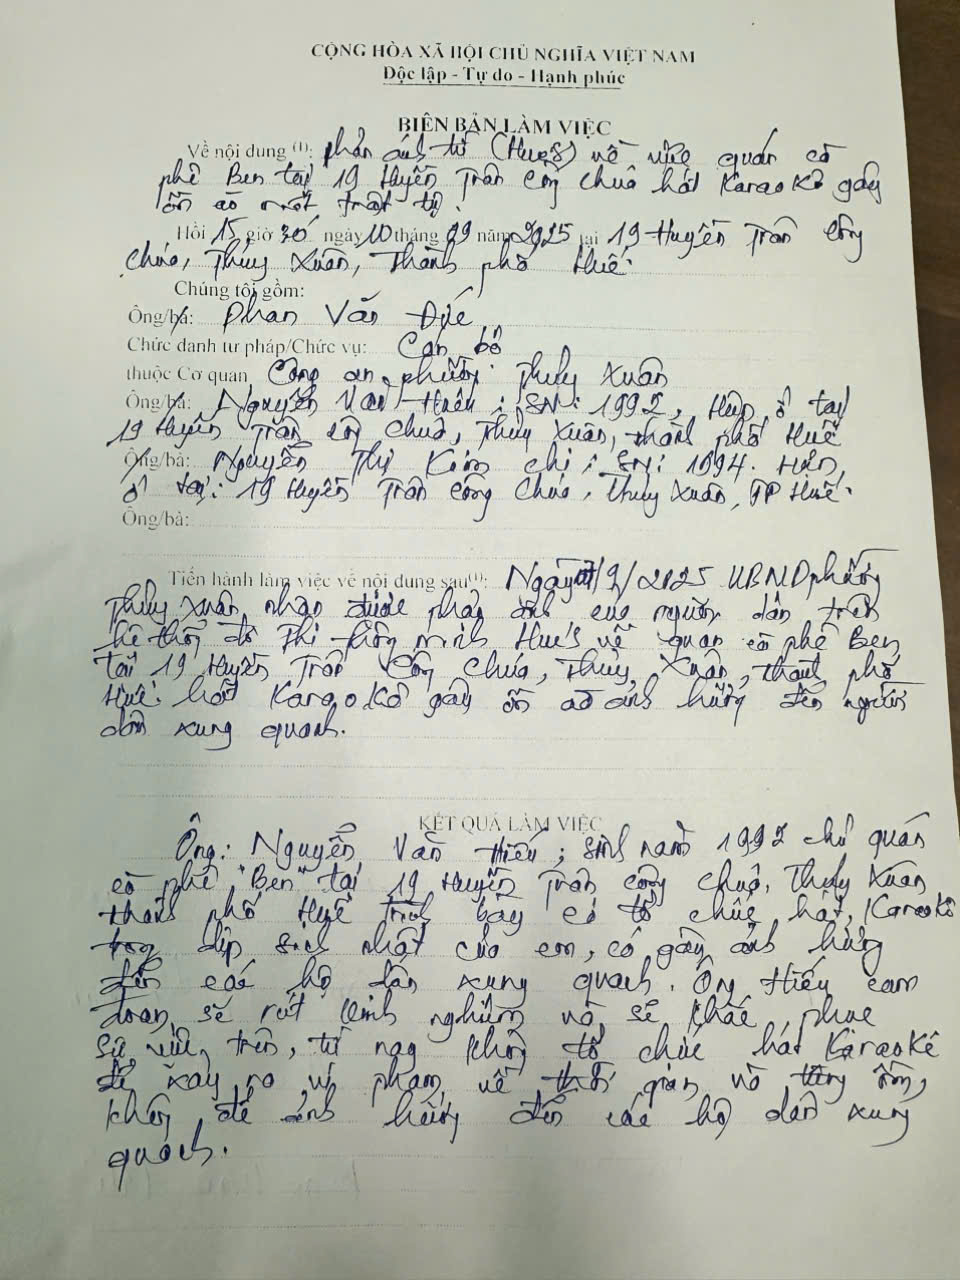 CỘNG HÒA XÃ HỘI CHỦ NGHĨA VIỆT NAM
Độc lập - Tự do - Hạnh phúc
BIÊN BẢN LÀM VIỆC
Về nội dung (1): phản ánh từ (HueS) về việc quán cà
phê Ben tại 19 Huyền Trân Công Chúa hát Karaokê gây
ồn ào mất trật tự.
Hồi 15 giờ 30 ngày 10 tháng 09 năm 2025 tại 19 Huyền Trân Công
Chúa, Thủy Xuân, Thành phố Huế.
Chúng tôi gồm:
Ông/bà: Phan Văn
Chức danh tư pháp/Chức vụ: Cán bộ
thuộc Cơ quan Công an phường Thủy Xuân
Ông/bà: Nguyễn Văn Hiếu; SN: 1992, Hiện ở tại
19 Huyền Trân Công Chúa, Thủy Xuân, thành phố Huế
Ông/bà: Nguyễn Thị Kim Chi; SN: 1994. Hiện
ở tại: 19 Huyền Trân Công Chúa, Thủy Xuân, TP Huế.
Ông/bà:
Tiến hành làm việc về nội dung sau(1): Ngày /9/2025 UBND phường
Thủy Xuân nhận được phản ánh của người dân trên
hệ thống đô thị thông minh Hue's về quán cà phê Ben
tại 19 Huyền Trân Công Chúa, Thủy Xuân, thành phố
Huế hát Karaokê gây ồn ào ảnh hưởng đến người
dân xung quanh.
KẾT QUẢ LÀM VIỆC
Ông: Nguyễn Văn Hiếu; sinh năm 1992 chủ quán
cà phê "Ben" tại 19 Huyền Trân Công Chúa, Thủy Xuân
thành phố Huế trình bày có tổ chức hát Karaokê
trong dịp sinh nhật của em, có gây ảnh hưởng
đến các hộ dân xung quanh. Ông Hiếu cam
đoan sẽ rút kinh nghiệm và sẽ khắc phục
sự việc trên, từ nay không tổ chức hát Karaokê
để xảy ra vi phạm về thời gian và tiếng ồn,
không để ảnh hưởng đến các hộ dân xung
quanh.